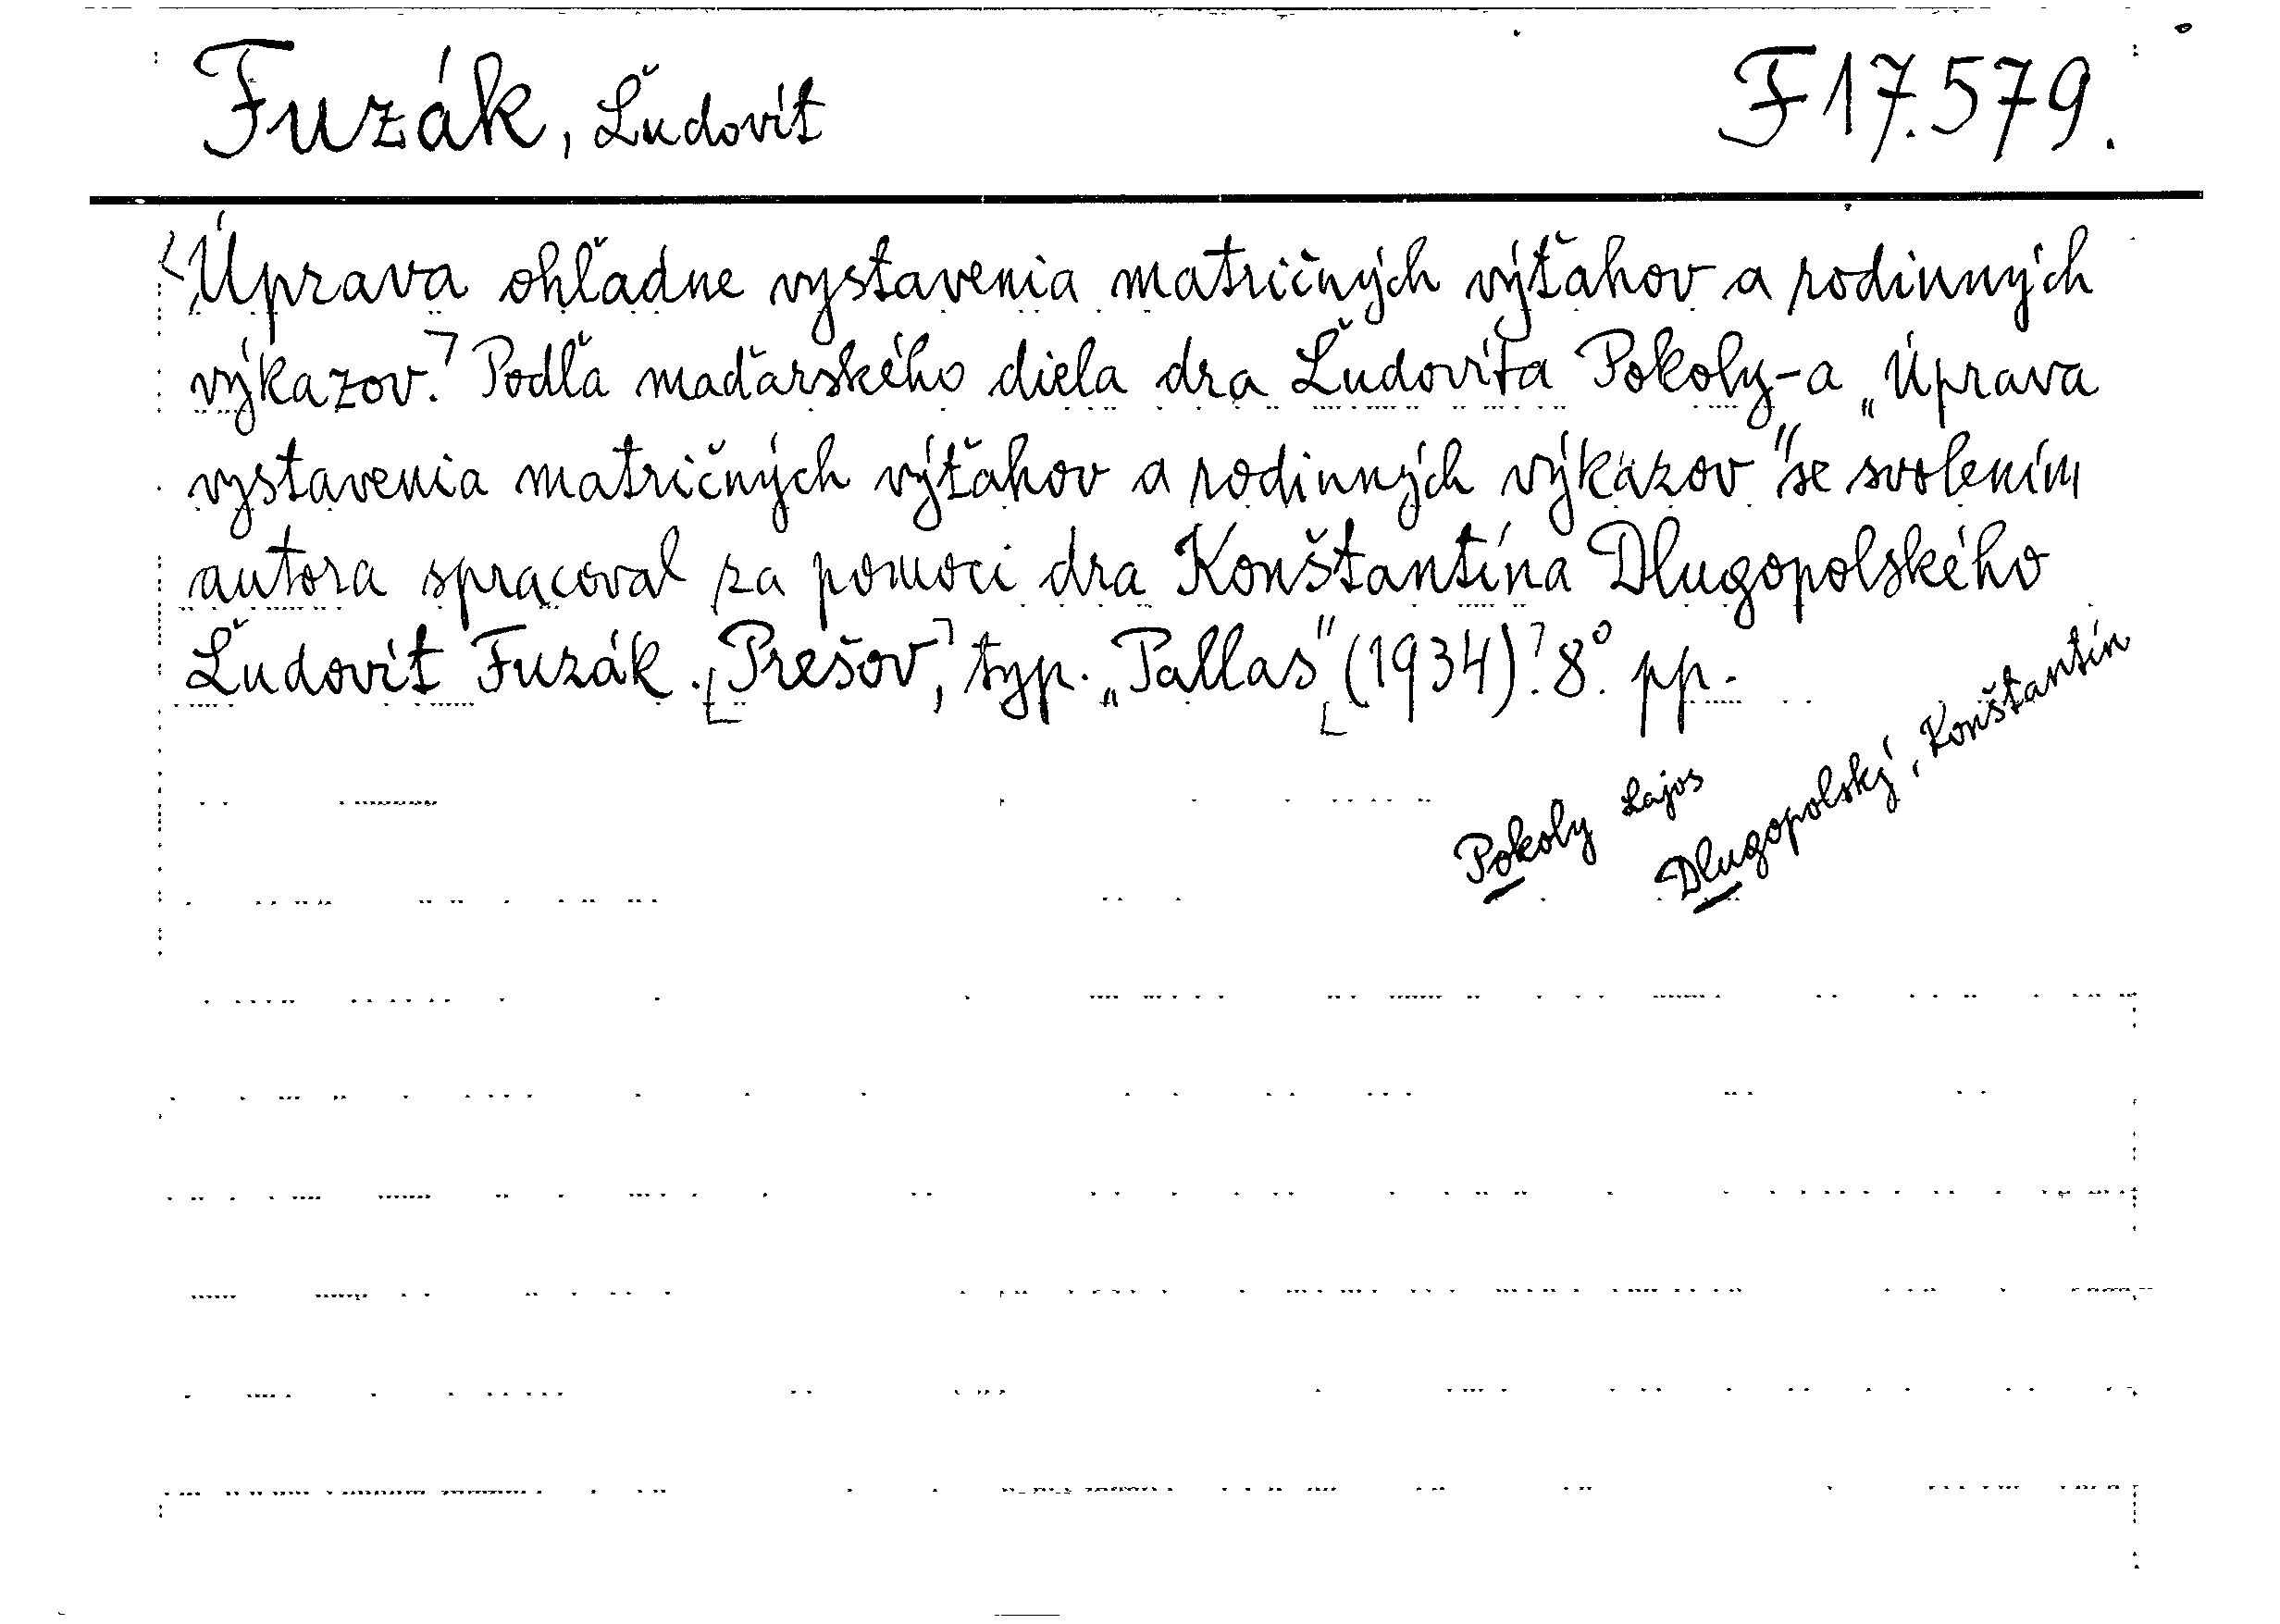 Fuzák, Ľudovít F 17.579.
Úprava ohľadne vystavenia matričných výťahov a rodinných
výkazov. Podľa maďarského diela dra Ľudovíta Pokoly-a „Úprava
vystavenia matričných výťahov a rodinných výkazov" se svolením
autora spracoval za pomoci dra Konštantína Dlugopolského
Ľudovít Fuzák. [Prešov], typ. „Pallas" [(1934)]. 8° pp.
Pokoly Lajos
Dlugopolský, Konštantín